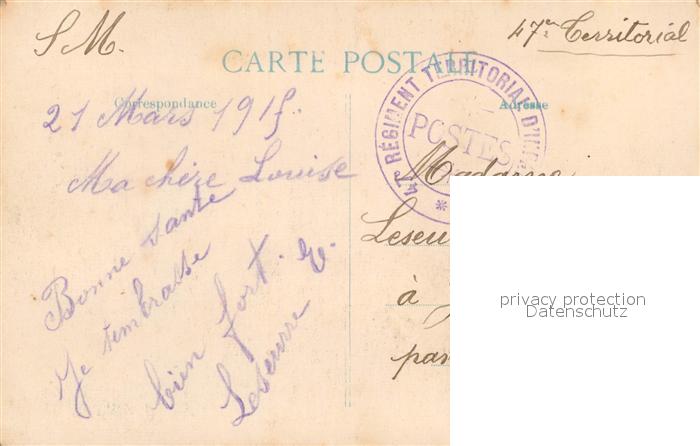 S M.
47e Territorial
CARTE POSTALE
Correspondance
Adresse
47e RÉGIMENT TERRITORIAL D'INF
POSTES
21 Mars 1915.
Ma chère Louise
Bonne santé
Je tembrasse
bien fort.
Leseurre
Madame
Leseu
à
par
privacy protection
Datenschutz